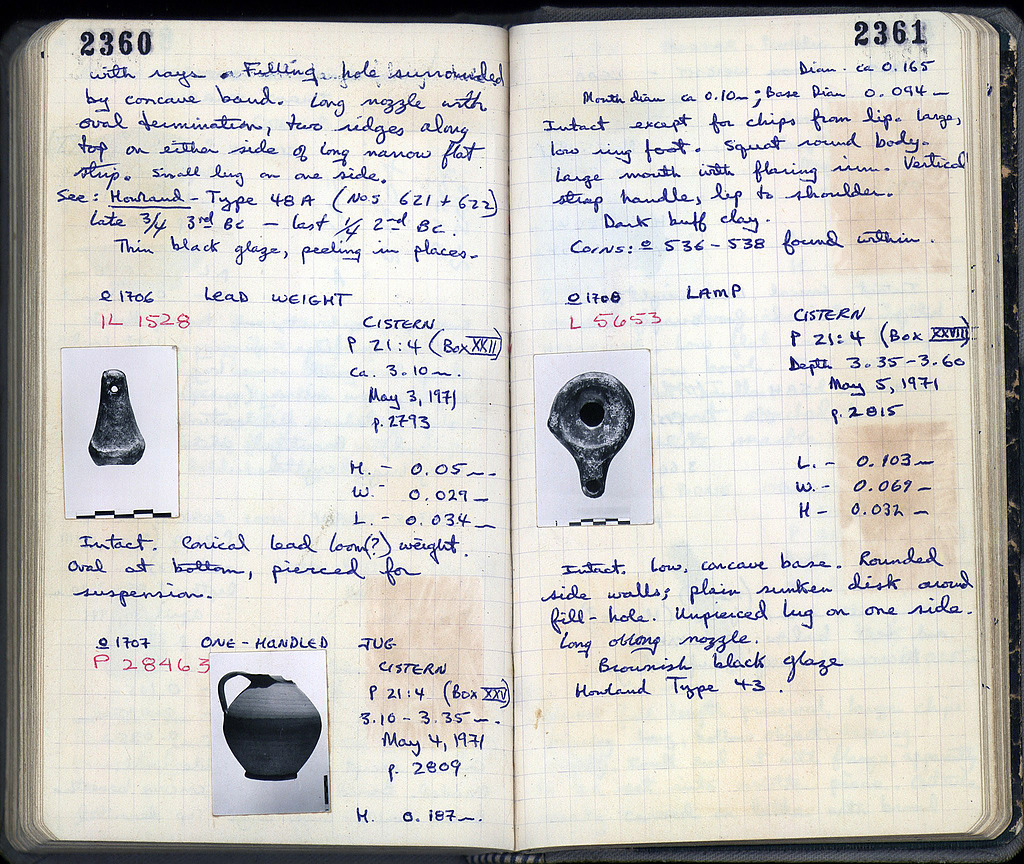 2360
with rays. Filling hole surrounded
by concave band. Long nozzle with
oval termination, two ridges along
top on either side of long narrow flat
strip. Small lug on one side.
See: Howland - Type 48A (Nos 621 + 622)
Late 3/4 3rd BC — last 1/4 2nd BC.
Thin black glaze, peeling in places.
o 1706 LEAD WEIGHT
IL 1528
CISTERN
P 21:4 (Box XXII)
ca. 3.10 m.
May 3, 1971
p. 2793
H. - 0.05 m.
W. - 0.029 m
L. - 0.034 m
Intact. Conical lead loom(?) weight.
Oval at bottom, pierced for
suspension.
o 1707 ONE-HANDLED JUG
P 28463
CISTERN
P 21:4 (Box XXV)
3.10 - 3.35 m.
May 4, 1971
p. 2809
H. 0.187 m.
2361
Diam. ca 0.165
Mouth diam ca 0.10 m; Base Diam 0.094 m
Intact except for chips from lip. Large,
low ring foot. Squat round body.
Large mouth with flaring rim. Vertical
strap handle, lip to shoulder.
Dark buff clay.
Coins: o 536 - 538 found within.
o 1708 LAMP
L 5653
CISTERN
P 21:4 (Box XXVII)
Depth 3.35 - 3.60
May 5, 1971
p. 2815
L. - 0.103 m
W. - 0.069 m
H - 0.032 m
Intact. Low, concave base. Rounded
side walls; plain sunken disk around
fill-hole. Unpierced lug on one side.
Long oblong nozzle.
Brownish black glaze
Howland Type 43.